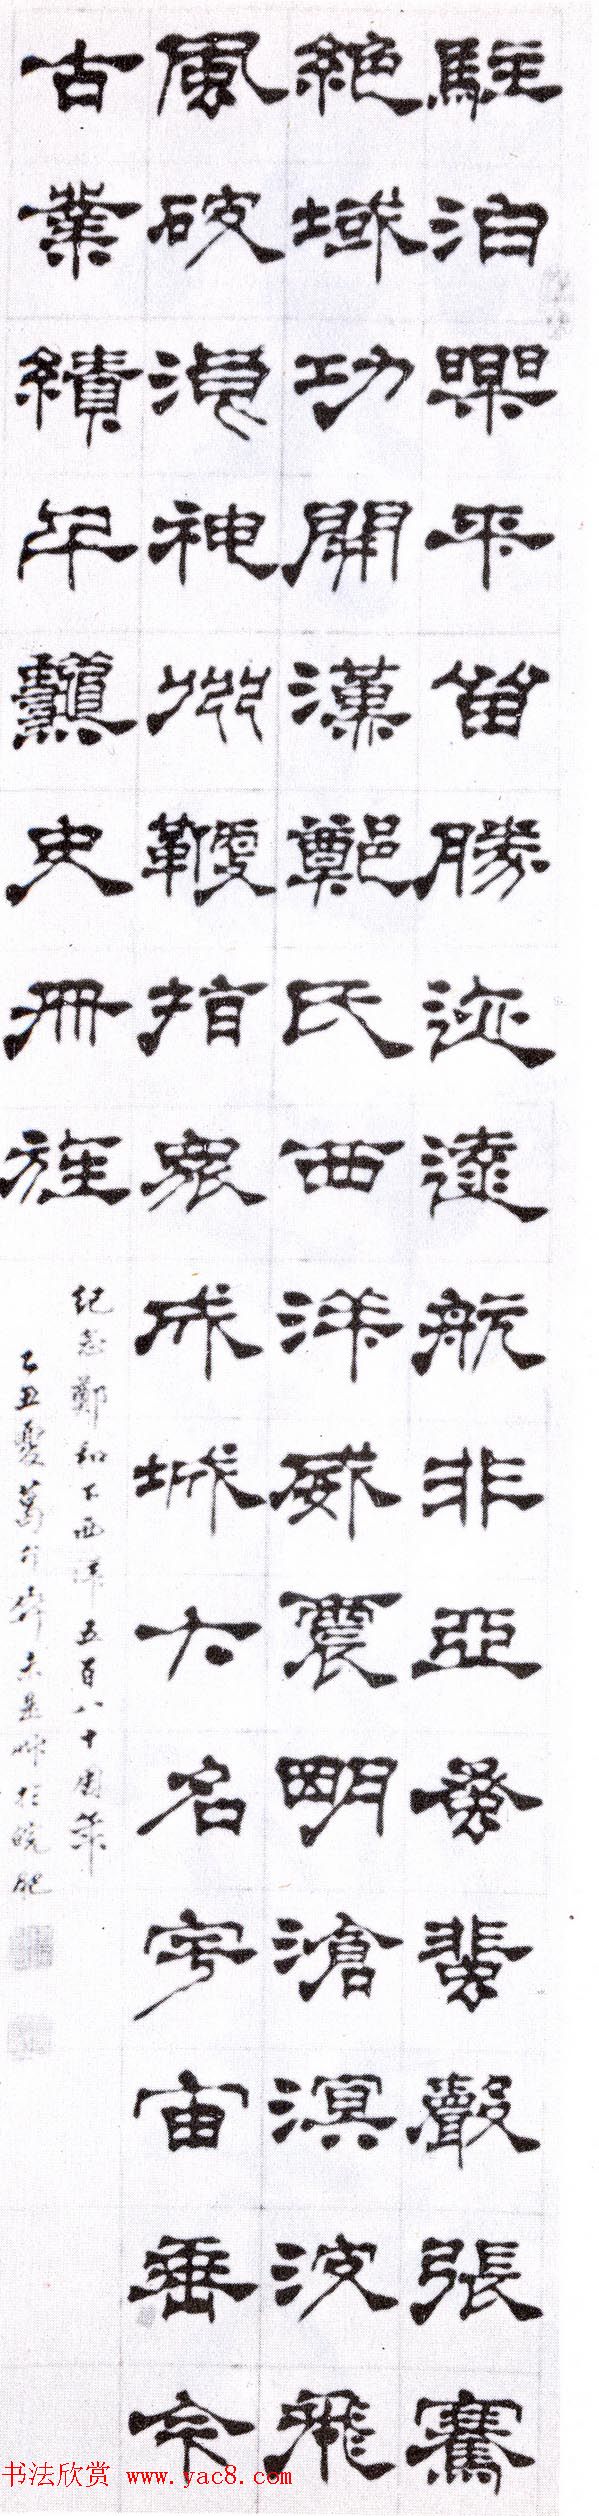 駐泊平留勝迹遠航非亞蚤蜚聲張騫
絕域功開漢鄭氏西洋威震明滄溟波飛
風破浪神州鞭指衆成城大名宇宙垂今
古業績千史冊旌
紀念鄭和下西洋五百八十周年
乙丑夏葛介屏於皖肥
书法欣赏 www.yac8.com